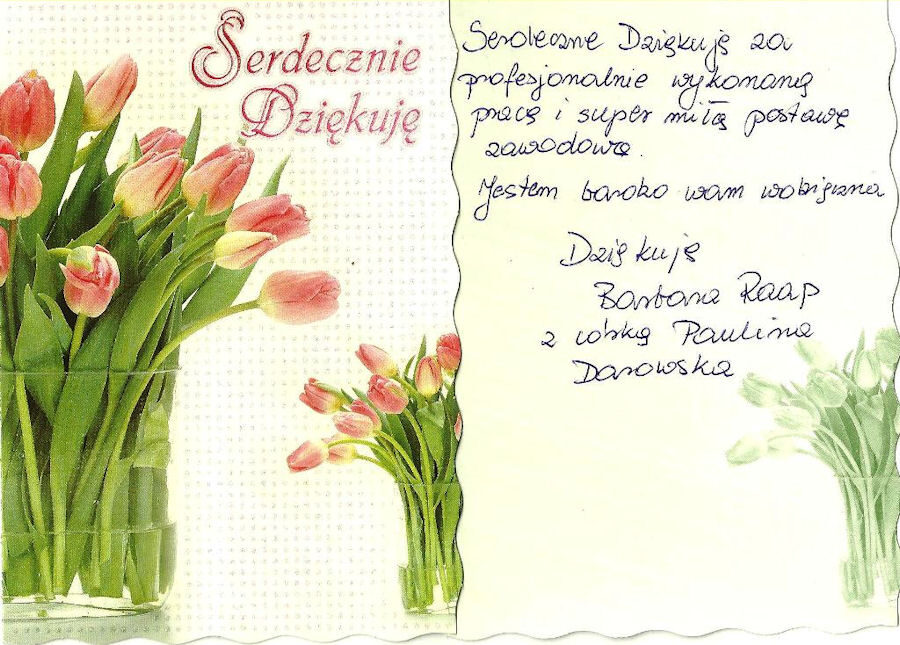 Serdecznie
Dziękuję
Serdeczne Dziękuję za
profesjonalnie wykonaną
pracę i super miłą postawę
zawodową.
Jestem bardzo wam wdzięczna
Dziękuję
Barbara Raap
z córką Paulina
Darowska